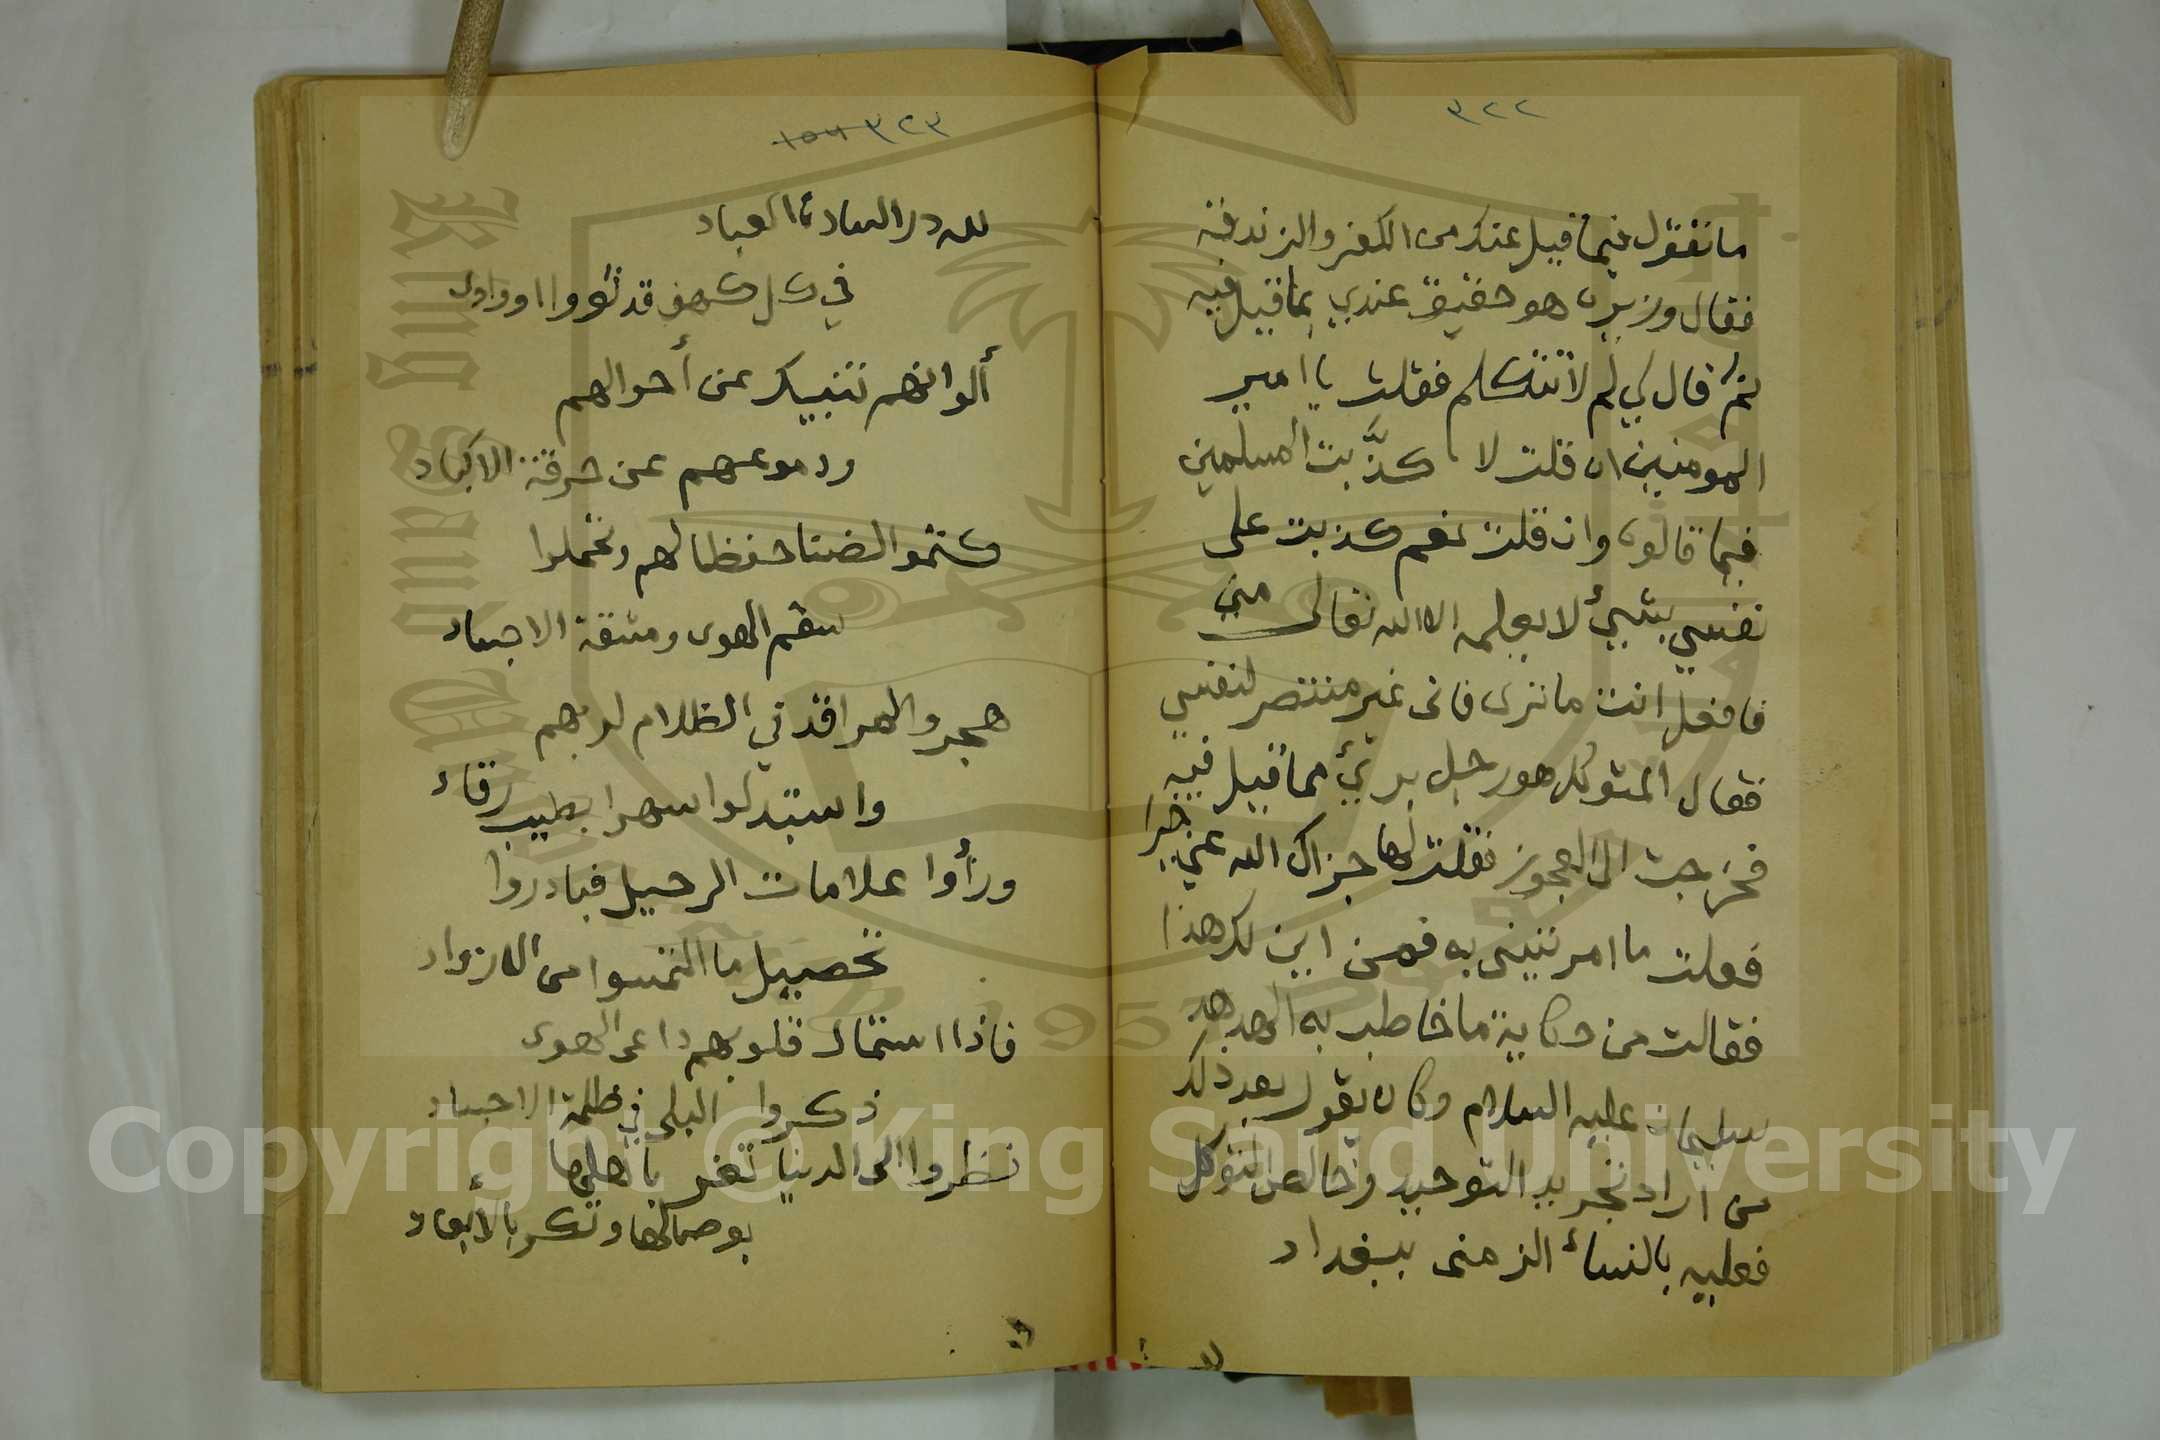 ٣٢٢
ما تقول فيما قيل عنك من الكفر والزندقة
فقال وزيره هو حقيق عندي بما قيل فيه
ثم قال لي لم لا تتكلم فقلت يا امير
المومنين ان قلت لا كذَّبت المسلمين
فيما قالوه وان قلت نعم كذبت على
نفسي بشيئ لا يعلمه الا الله تعالى مني
فافعل انت ما ترى فانى غير منتصر لنفسي
فقال المتوكل هو رجل بريئ مما قيل فيه
فخرجت الى العجوز فقلت لها جزاك الله عني خيرا
فعلت ما امرتينى به فمن اين لك هذا
فقالت من حكاية ما خاطب به الهدهد
سليمان عليه السلام وكان يقول بعد ذلك
من اراد تجريد التوحيد وخالص التوكل
فعليه بالنساء الزمنى ببغداد
٣٢٣
لله در السادة العباد
في كل كهف قد ثووا او وادى
ألوانهم تنبيك عن أحوالهم
ودموعهم عن حرقة الاكباد
كتموا الضنا حفظا لهم وتحملوا
سقم الهوى ومشقة الاجساد
هجروا المراقد في الظلام لربهم
واستبدلوا سهرا بطيب رقاء
ورأوا علامات الرحيل فبادروا
تحصيل ما التمسوا من الازواد
فاذا استمال قلوبهم داعى الهوى
ذكروا البلى في ظلمة الاجساد
نظروا الى الدنيا تغر باهلها
بوصالها وتكر بالأبعاد
King Saud University
1957
Copyright © King Saud University